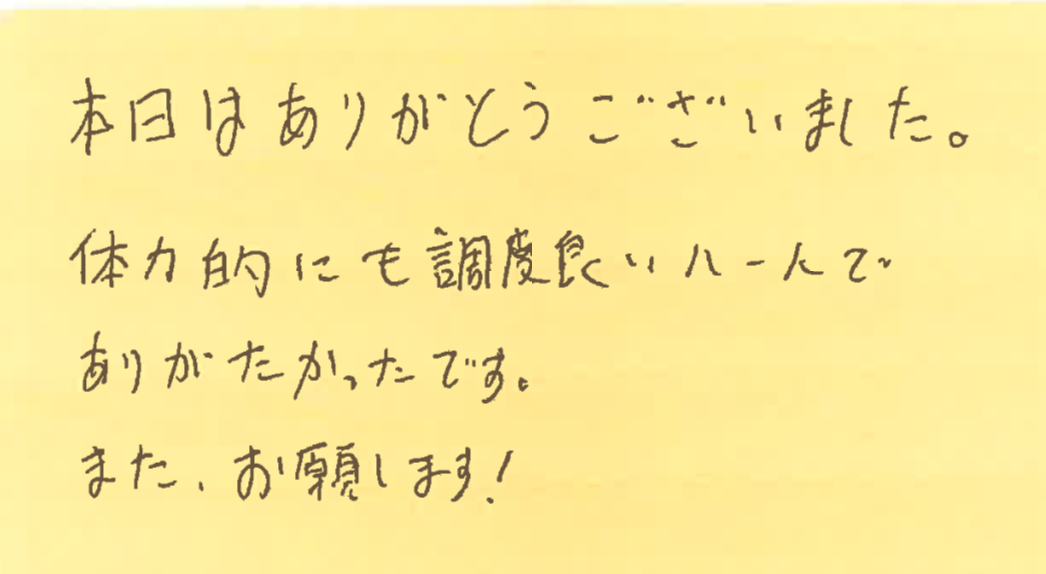 本日はありがとうございました。
体力的にも調度良いルートで
ありがたかったです。
また、お願します!